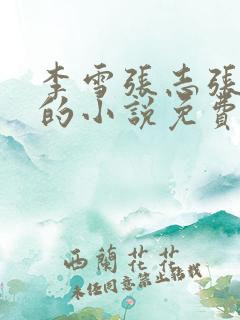 李雪張志張
的小說免費
西蘭花花
未经同意禁止搬栽